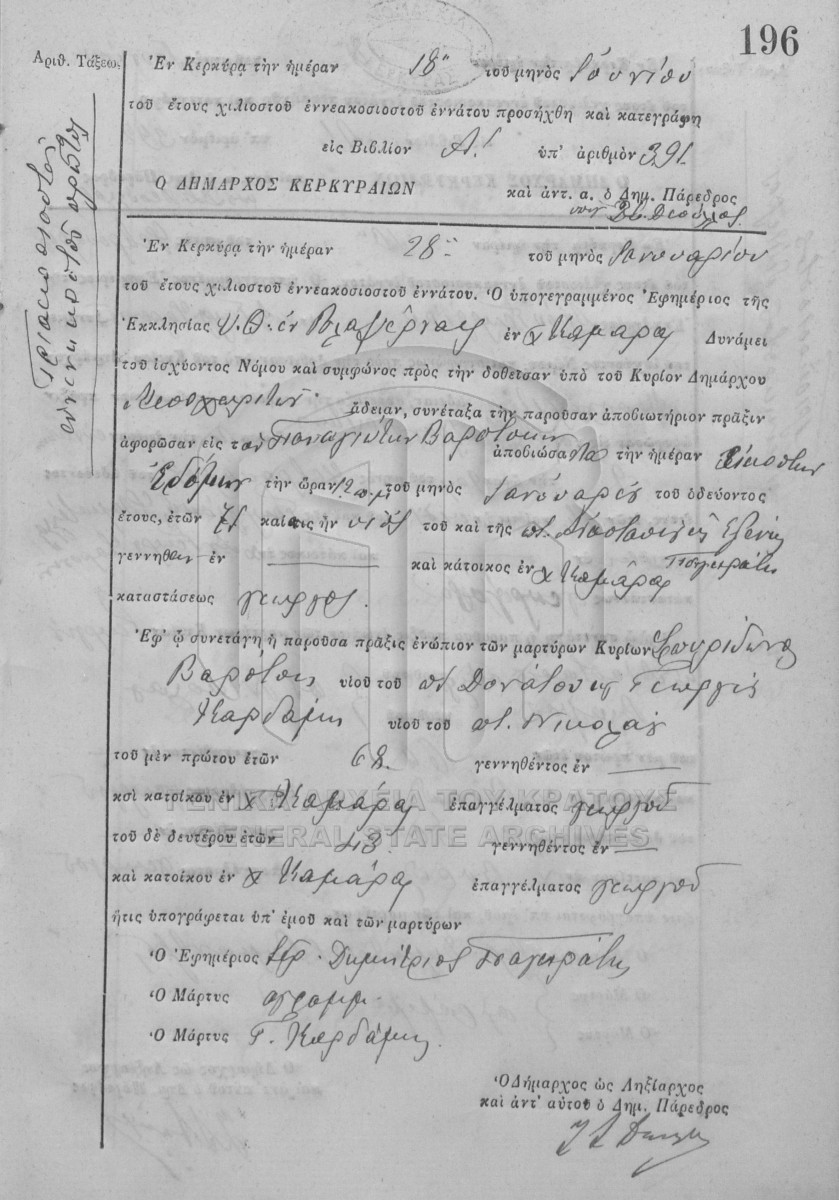 196
Ἀριθ. Τάξεως
Τριακοσιοστὸς
ἐνενηκοστοῦ πρώτου
Ἐν Κερκύρᾳ τὴν ἡμέραν 18ην τοῦ μηνὸς Ἰουνίου
τοῦ ἔτους χιλιοστοῦ ἐννεακοσιοστοῦ ἐννάτου προσήχθη καὶ κατεγράφη
εἰς Βιβλίον Α.' ὑπ' ἀριθμὸν 391.
Ο ΔΗΜΑΡΧΟΣ ΚΕΡΚΥΡΑΙΩΝ καὶ ἀντ. α. ὁ Δημ. Πάρεδρος
Ἐν Κερκύρᾳ τὴν ἡμέραν 28ην τοῦ μηνὸς Ἰανουαρίου
τοῦ ἔτους χιλιοστοῦ ἐννεακοσιοστοῦ ἐννάτου. Ὁ ὑπογεγραμμένος Ἐφημέριος τῆς
Ἐκκλησίας Υ. Θ. ἐν Βλαχέρναις ἐν χ Καμάρα Δυνάμει
τοῦ ἰσχύοντος Νόμου καὶ συμφώνος πρὸς τὴν δοθεῖσαν ὑπὸ τοῦ Κυρίου Δημάρχου
ἄδειαν, συνέταξα τὴν παροῦσαν ἀποβιωτήριον πρᾶξιν
ἀφορῶσαν εἰς τὸν Παναγιώτην Βαρότσην ἀποβιώσαντα τὴν ἡμέραν Εἰκοστὴν
Ἑβδόμην τὴν ὥραν 12 π.μ. τοῦ μηνὸς Ἰανουαρίου τοῦ ὁδεύοντος
ἔτους, ἐτῶν 71 καὶ ὅστις ἦν υἱὸς τοῦ καὶ τῆς
γεννηθεὶς ἐν καὶ κάτοικος ἐν χ Καμάρα Παγκράτη
καταστάσεως γεωργός.
Ἐφ' ᾧ συνετάγη ἡ παροῦσα πρᾶξις ἐνώπιον τῶν μαρτύρων Κυρίων Σπυρίδωνος
Βαρότση υἱοῦ τοῦ ποτ Δονάτου κ Γεωργίου
Καρδάμη υἱοῦ τοῦ ποτ. Νικολάου
τοῦ μὲν πρώτου ἐτῶν 68 γεννηθέντος ἐν
κσὶ κατοίκου ἐν χ Καμάρα ἐπαγγέλματος γεωργοῦ
ΓΕΝΙΚΑ ΑΡΧΕΙΑ ΤΟΥ ΚΡΑΤΟΥΣ
GENERAL STATE ARCHIVES
τοῦ δὲ δευτέρου ἐτῶν 43 γεννηθέντος ἐν
καὶ κατοίκου ἐν χ Καμάρα ἐπαγγέλματος γεωργοῦ
ἥτις ὑπογράφεται ὑπ' ἐμοῦ καὶ τῶν μαρτύρων
Ὁ Ἐφημέριος Ἱερ. Δημήτριος Παγκράτης
Ὁ Μάρτυς ἀγραμμ.
Ὁ Μάρτυς Γ. Καρδάμης
Ὁ Δήμαρχος ὡς Ληξίαρχος
καὶ ἀντ' αὐτοῦ ὁ Δημ. Πάρεδρος